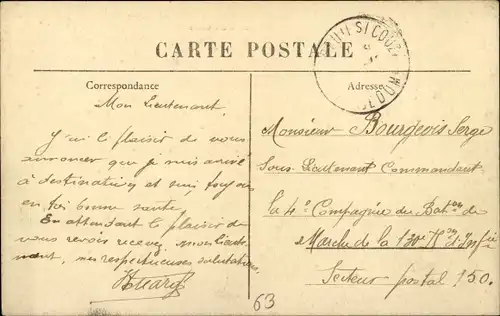 CARTE POSTALE
Correspondance
Adresse
Mon Lieutenant.
J'ai le plaisir de vous
annoncer que je suis arrivé
à destination et suis toujours
en foi bonne santé.
En attendant le plaisir de
vous revoir recevez mon lieute
nant, mes respectueuses salutations,
Monsieur Bourgeois Serge
Sous-Lieutenant Commandant
la 4e Compagnie du Baton de
Marche de la 130e Don d'Infie
Secteur postal 150.
63